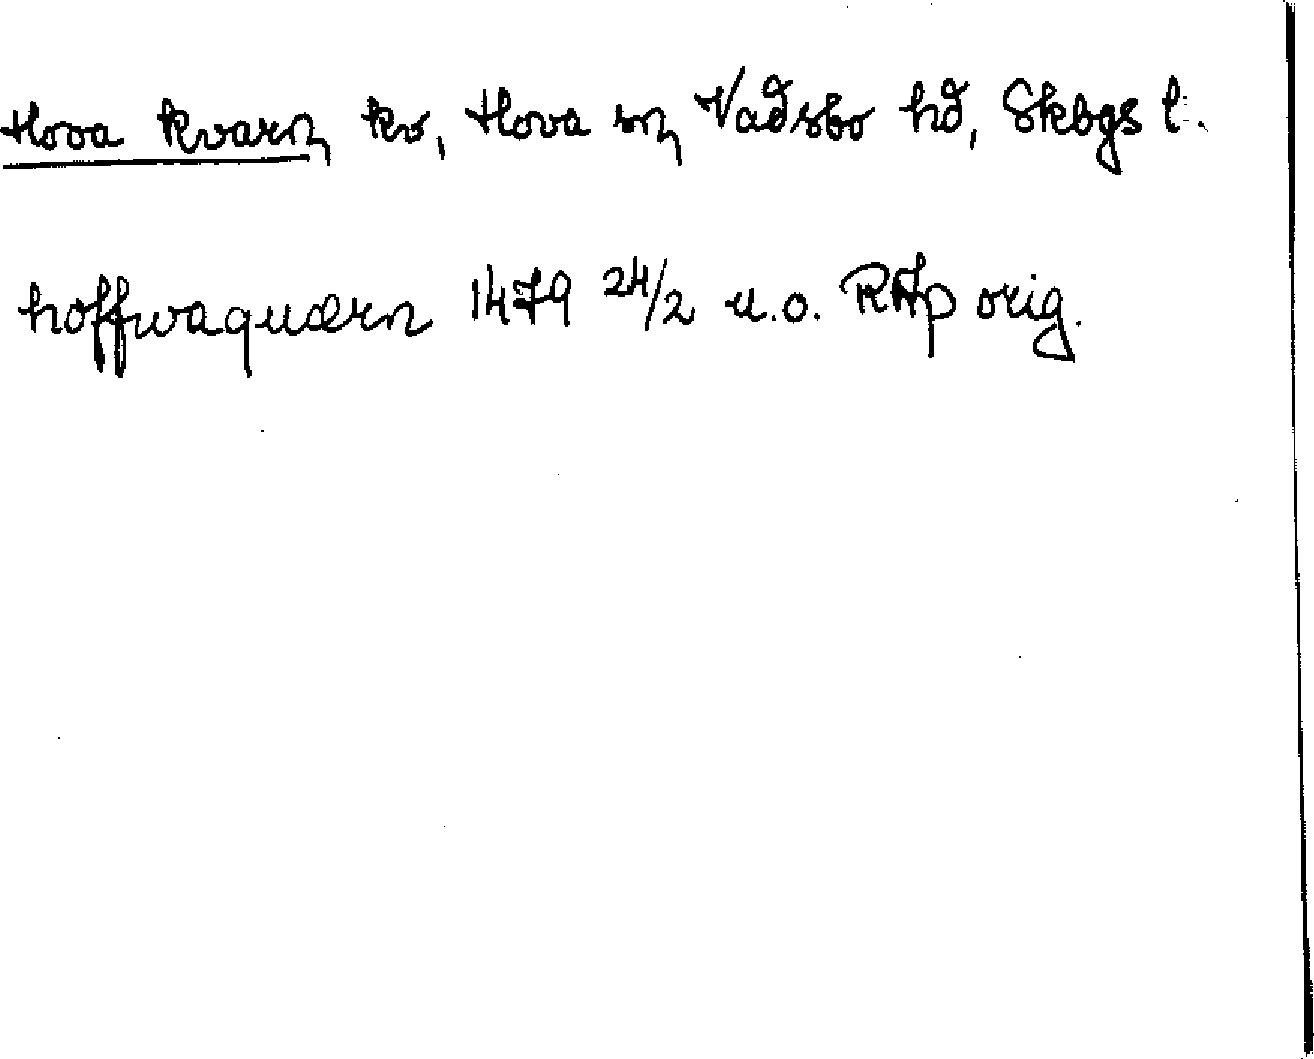 Hova kvarn kv, Hova sn Vadsbo hd, Skbgs l.
hoffwaquærn 1479 24/2 u.o. RAp orig.